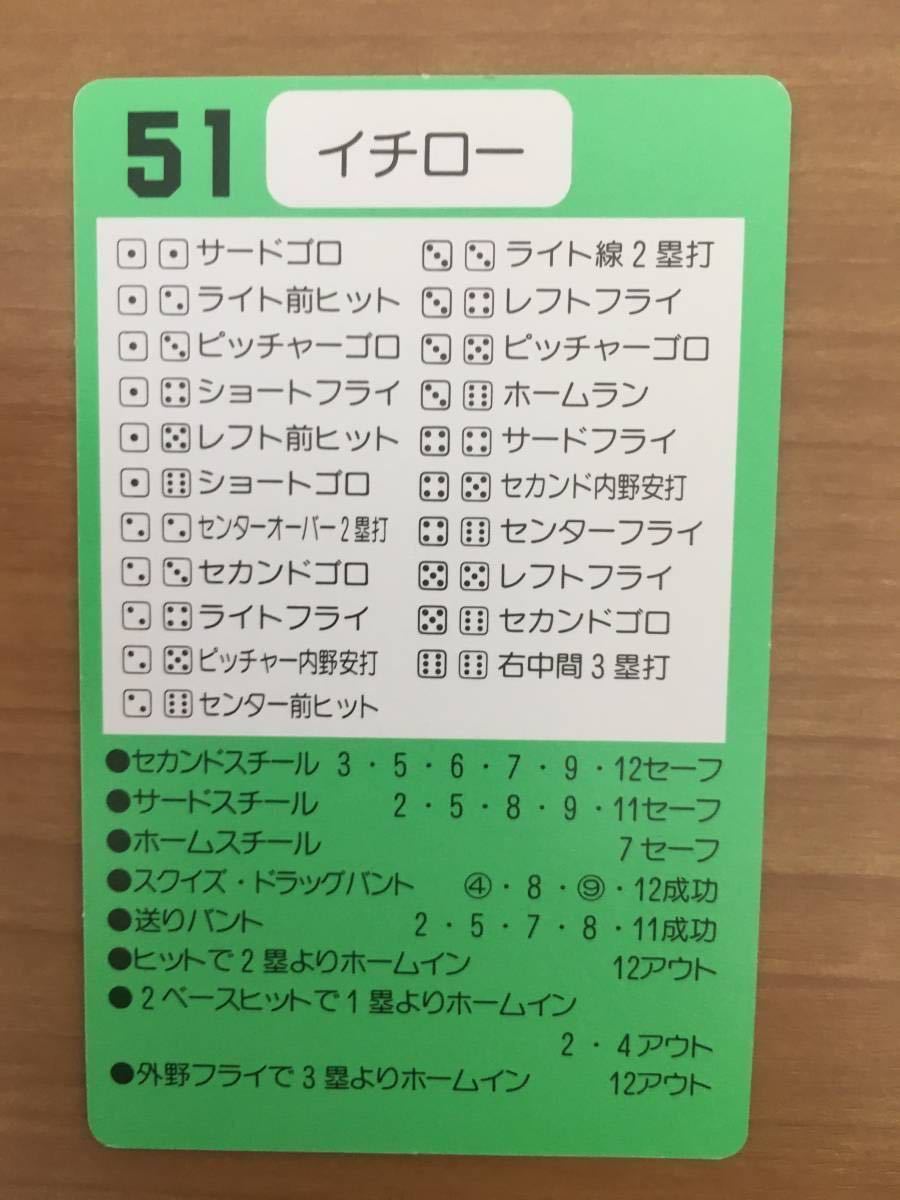 51 イチロー
サードゴロ
ライト前ヒット
ピッチャーゴロ
ショートフライ
レフト前ヒット
ショートゴロ
センターオーバー2塁打
セカンドゴロ
ライトフライ
ピッチャー内野安打
センター前ヒット
ライト線2塁打
レフトフライ
ピッチャーゴロ
ホームラン
サードフライ
セカンド内野安打
センターフライ
レフトフライ
セカンドゴロ
右中間3塁打
●セカンドスチール 3・5・6・7・9・12セーフ
●サードスチール 2・5・8・9・11セーフ
●ホームスチール 7セーフ
●スクイズ・ドラッグバント ④・8・⑨・12成功
●送りバント 2・5・7・8・11成功
●ヒットで2塁よりホームイン 12アウト
●2ベースヒットで1塁よりホームイン
2・4アウト
●外野フライで3塁よりホームイン 12アウト